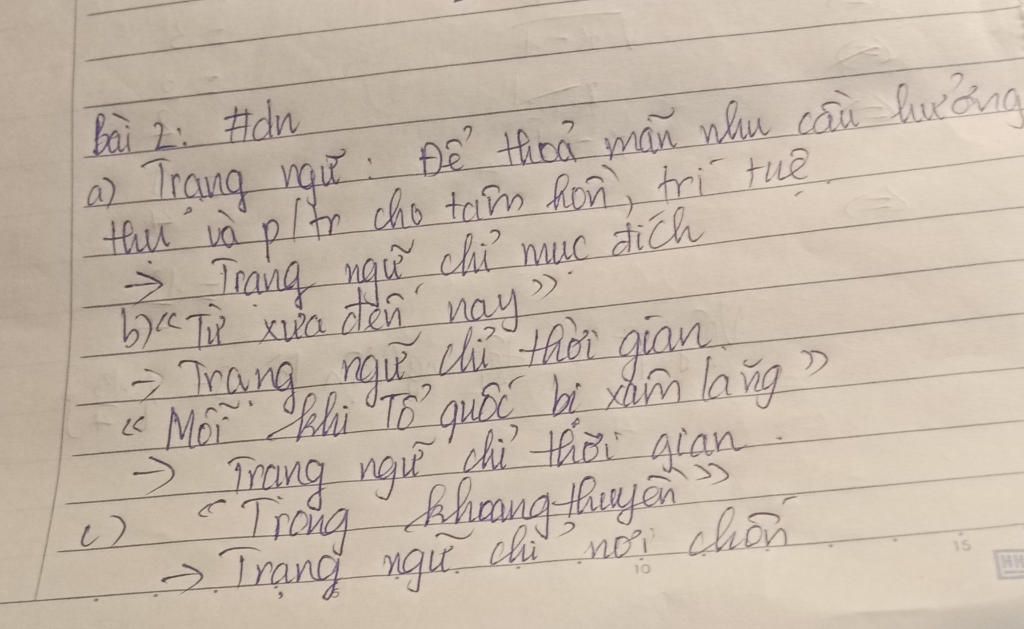 Bài 2: #dn
a) Trạng ngữ: Để thoả mãn nhu cầu hưởng
thụ và p/tr cho tâm hồn, trí tuệ.
→ Trạng ngữ chỉ mục đích
b) "Từ xưa đến nay"
→ Trạng ngữ chỉ thời gian.
"Mỗi khi Tổ quốc bị xâm lăng"
→ Trạng ngữ chỉ thời gian.
c) "Trong khoang thuyền"
→ Trạng ngữ chỉ nơi chốn
10 15
HH